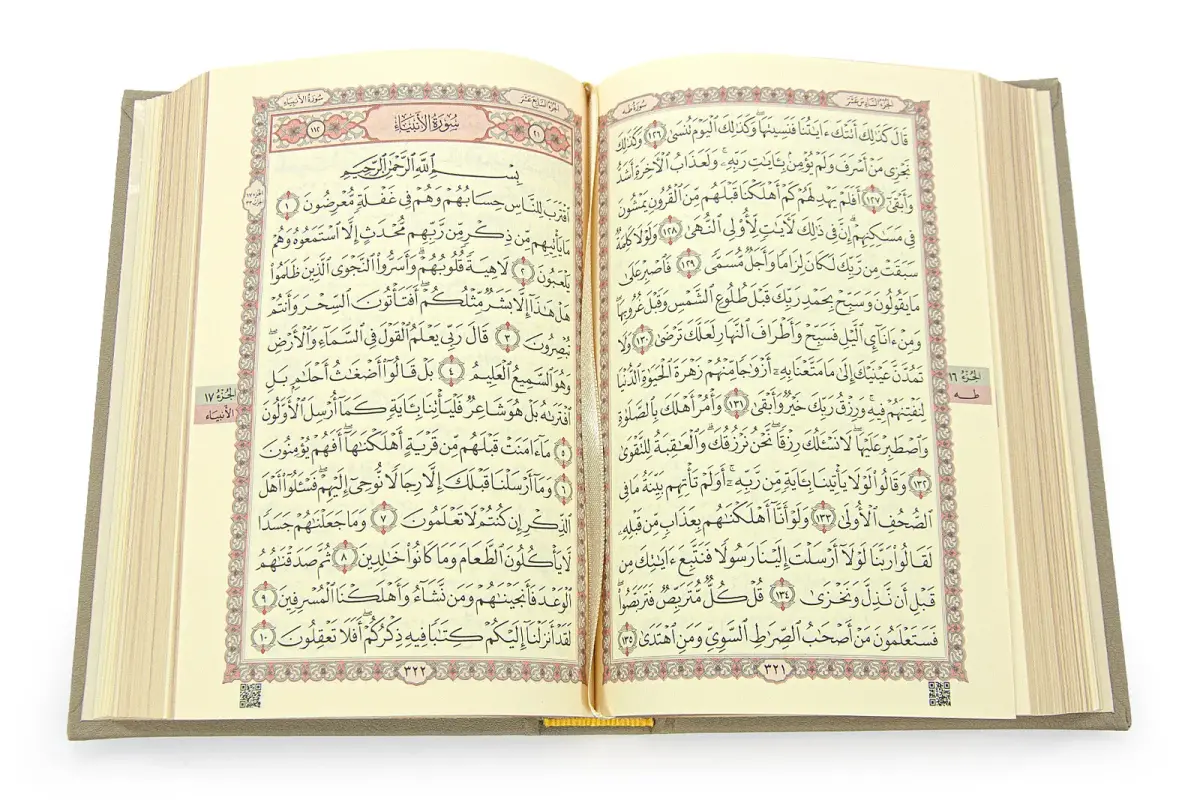 سُورَةُ طه
الجُزْءُ السَّادِسَ عَشَرَ
قَالَ كَذَٰلِكَ أَتَتْكَ ءَايَٰتُنَا فَنَسِيتَهَا ۖ وَكَذَٰلِكَ ٱلْيَوْمَ تُنسَىٰ ١٢٦ وَكَذَٰلِكَ
نَجْزِى مَنْ أَسْرَفَ وَلَمْ يُؤْمِنۢ بِـَٔايَٰتِ رَبِّهِۦ ۚ وَلَعَذَابُ ٱلْءَاخِرَةِ أَشَدُّ
وَأَبْقَىٰٓ ١٢٧ أَفَلَمْ يَهْدِ لَهُمْ كَمْ أَهْلَكْنَا قَبْلَهُم مِّنَ ٱلْقُرُونِ يَمْشُونَ
فِى مَسَٰكِنِهِمْ ۗ إِنَّ فِى ذَٰلِكَ لَءَايَٰتٍ لِّأُو۟لِى ٱلنُّهَىٰ ١٢٨ وَلَوْلَا كَلِمَةٌ
سَبَقَتْ مِن رَّبِّكَ لَكَانَ لِزَامًا وَأَجَلٌ مُّسَمًّى ١٢٩ فَٱصْبِرْ عَلَىٰ
مَا يَقُولُونَ وَسَبِّحْ بِحَمْدِ رَبِّكَ قَبْلَ طُلُوعِ ٱلشَّمْسِ وَقَبْلَ غُرُوبِهَا ۖ
وَمِنْ ءَانَآئِ ٱلَّيْلِ فَسَبِّحْ وَأَطْرَافَ ٱلنَّهَارِ لَعَلَّكَ تَرْضَىٰ ١٣٠ وَلَا
تَمُدَّنَّ عَيْنَيْكَ إِلَىٰ مَا مَتَّعْنَا بِهِۦٓ أَزْوَٰجًا مِّنْهُمْ زَهْرَةَ ٱلْحَيَوٰةِ ٱلدُّنْيَا
لِنَفْتِنَهُمْ فِيهِ ۚ وَرِزْقُ رَبِّكَ خَيْرٌ وَأَبْقَىٰ ١٣١ وَأْمُرْ أَهْلَكَ بِٱلصَّلَوٰةِ
وَٱصْطَبِرْ عَلَيْهَا ۖ لَا نَسْـَٔلُكَ رِزْقًا ۖ نَّحْنُ نَرْزُقُكَ ۗ وَٱلْعَٰقِبَةُ لِلتَّقْوَىٰ
١٣٢ وَقَالُوا۟ لَوْلَا يَأْتِينَا بِـَٔايَةٍ مِّن رَّبِّهِۦٓ ۚ أَوَلَمْ تَأْتِهِم بَيِّنَةُ مَا فِى
ٱلصُّحُفِ ٱلْأُولَىٰ ١٣٣ وَلَوْ أَنَّآ أَهْلَكْنَٰهُم بِعَذَابٍ مِّن قَبْلِهِۦ
لَقَالُوا۟ رَبَّنَا لَوْلَآ أَرْسَلْتَ إِلَيْنَا رَسُولًا فَنَتَّبِعَ ءَايَٰتِكَ مِن
قَبْلِ أَن نَّذِلَّ وَنَخْزَىٰ ١٣٤ قُلْ كُلٌّ مُّتَرَبِّصٌ فَتَرَبَّصُوا۟ ۖ
فَسَتَعْلَمُونَ مَنْ أَصْحَٰبُ ٱلصِّرَٰطِ ٱلسَّوِىِّ وَمَنِ ٱهْتَدَىٰ ١٣٥
٣٢١
الجُزْءُ ١٦
طه
الجُزْءُ السَّابِعَ عَشَرَ
سُورَةُ الأَنبِيَاءِ
٢١ سُورَةُ الأَنبِيَاءِ ١١٢
بِسْمِ ٱللَّهِ ٱلرَّحْمَٰنِ ٱلرَّحِيمِ
ٱقْتَرَبَ لِلنَّاسِ حِسَابُهُمْ وَهُمْ فِى غَفْلَةٍ مُّعْرِضُونَ ١
مَا يَأْتِيهِم مِّن ذِكْرٍ مِّن رَّبِّهِم مُّحْدَثٍ إِلَّا ٱسْتَمَعُوهُ وَهُمْ
يَلْعَبُونَ ٢ لَاهِيَةً قُلُوبُهُمْ ۗ وَأَسَرُّوا۟ ٱلنَّجْوَى ٱلَّذِينَ ظَلَمُوا۟
هَلْ هَٰذَآ إِلَّا بَشَرٌ مِّثْلُكُمْ ۖ أَفَتَأْتُونَ ٱلسِّحْرَ وَأَنتُمْ
تُبْصِرُونَ ٣ قَالَ رَبِّى يَعْلَمُ ٱلْقَوْلَ فِى ٱلسَّمَآءِ وَٱلْأَرْضِ ۖ
وَهُوَ ٱلسَّمِيعُ ٱلْعَلِيمُ ٤ بَلْ قَالُوٓا۟ أَضْغَٰثُ أَحْلَٰمٍ بَلِ
ٱفْتَرَىٰهُ بَلْ هُوَ شَاعِرٌ فَلْيَأْتِنَا بِـَٔايَةٍ كَمَآ أُرْسِلَ ٱلْأَوَّلُونَ
٥ مَآ ءَامَنَتْ قَبْلَهُم مِّن قَرْيَةٍ أَهْلَكْنَٰهَآ ۖ أَفَهُمْ يُؤْمِنُونَ
٦ وَمَآ أَرْسَلْنَا قَبْلَكَ إِلَّا رِجَالًا نُّوحِىٓ إِلَيْهِمْ ۖ فَسْـَٔلُوٓا۟ أَهْلَ
ٱلذِّكْرِ إِن كُنتُمْ لَا تَعْلَمُونَ ٧ وَمَا جَعَلْنَٰهُمْ جَسَدًا
لَّا يَأْكُلُونَ ٱلطَّعَامَ وَمَا كَانُوا۟ خَٰلِدِينَ ٨ ثُمَّ صَدَقْنَٰهُمُ
ٱلْوَعْدَ فَأَنجَيْنَٰهُمْ وَمَن نَّشَآءُ وَأَهْلَكْنَا ٱلْمُسْرِفِينَ ٩
لَقَدْ أَنزَلْنَآ إِلَيْكُمْ كِتَٰبًا فِيهِ ذِكْرُكُمْ ۖ أَفَلَا تَعْقِلُونَ ١٠
٣٢٢
الجُزْءُ ١٧
الأَنبِيَاء